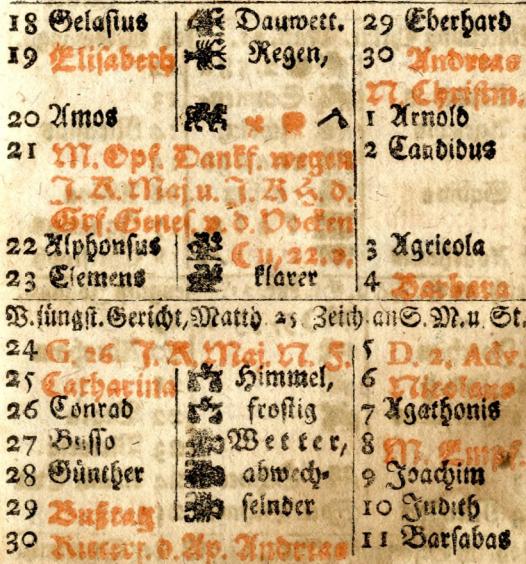 18 Gelasius Dauwett. 29 Eberhard
19 Elisabeth Regen, 30 Andreas
N. Christm.
20 Amos 1 Arnold
21 M. Opf. Dankf. wegen 2 Candidus
J. K. Maj. u. J. K. H. d.
Grf. Genes. v. d. Pocken
22 Alphonsus 3 Agricola
23 Clemens klarer 4 Barbara
V. jüngst. Gericht, Matth. 25 Zeich. an S. M. u. St.
24 G. 26 J. K. Maj. N. F. 5 D. 2. Adv.
25 Catharina Himmel, 6 Nicolaus
26 Conrad frostig 7 Agathonis
27 Busso Wetter, 8 M. Empf.
28 Günther abwech- 9 Joachim
29 Bußtag selnder 10 Judith
30 Ritterf. d. Ap. Andreas 11 Barsabas